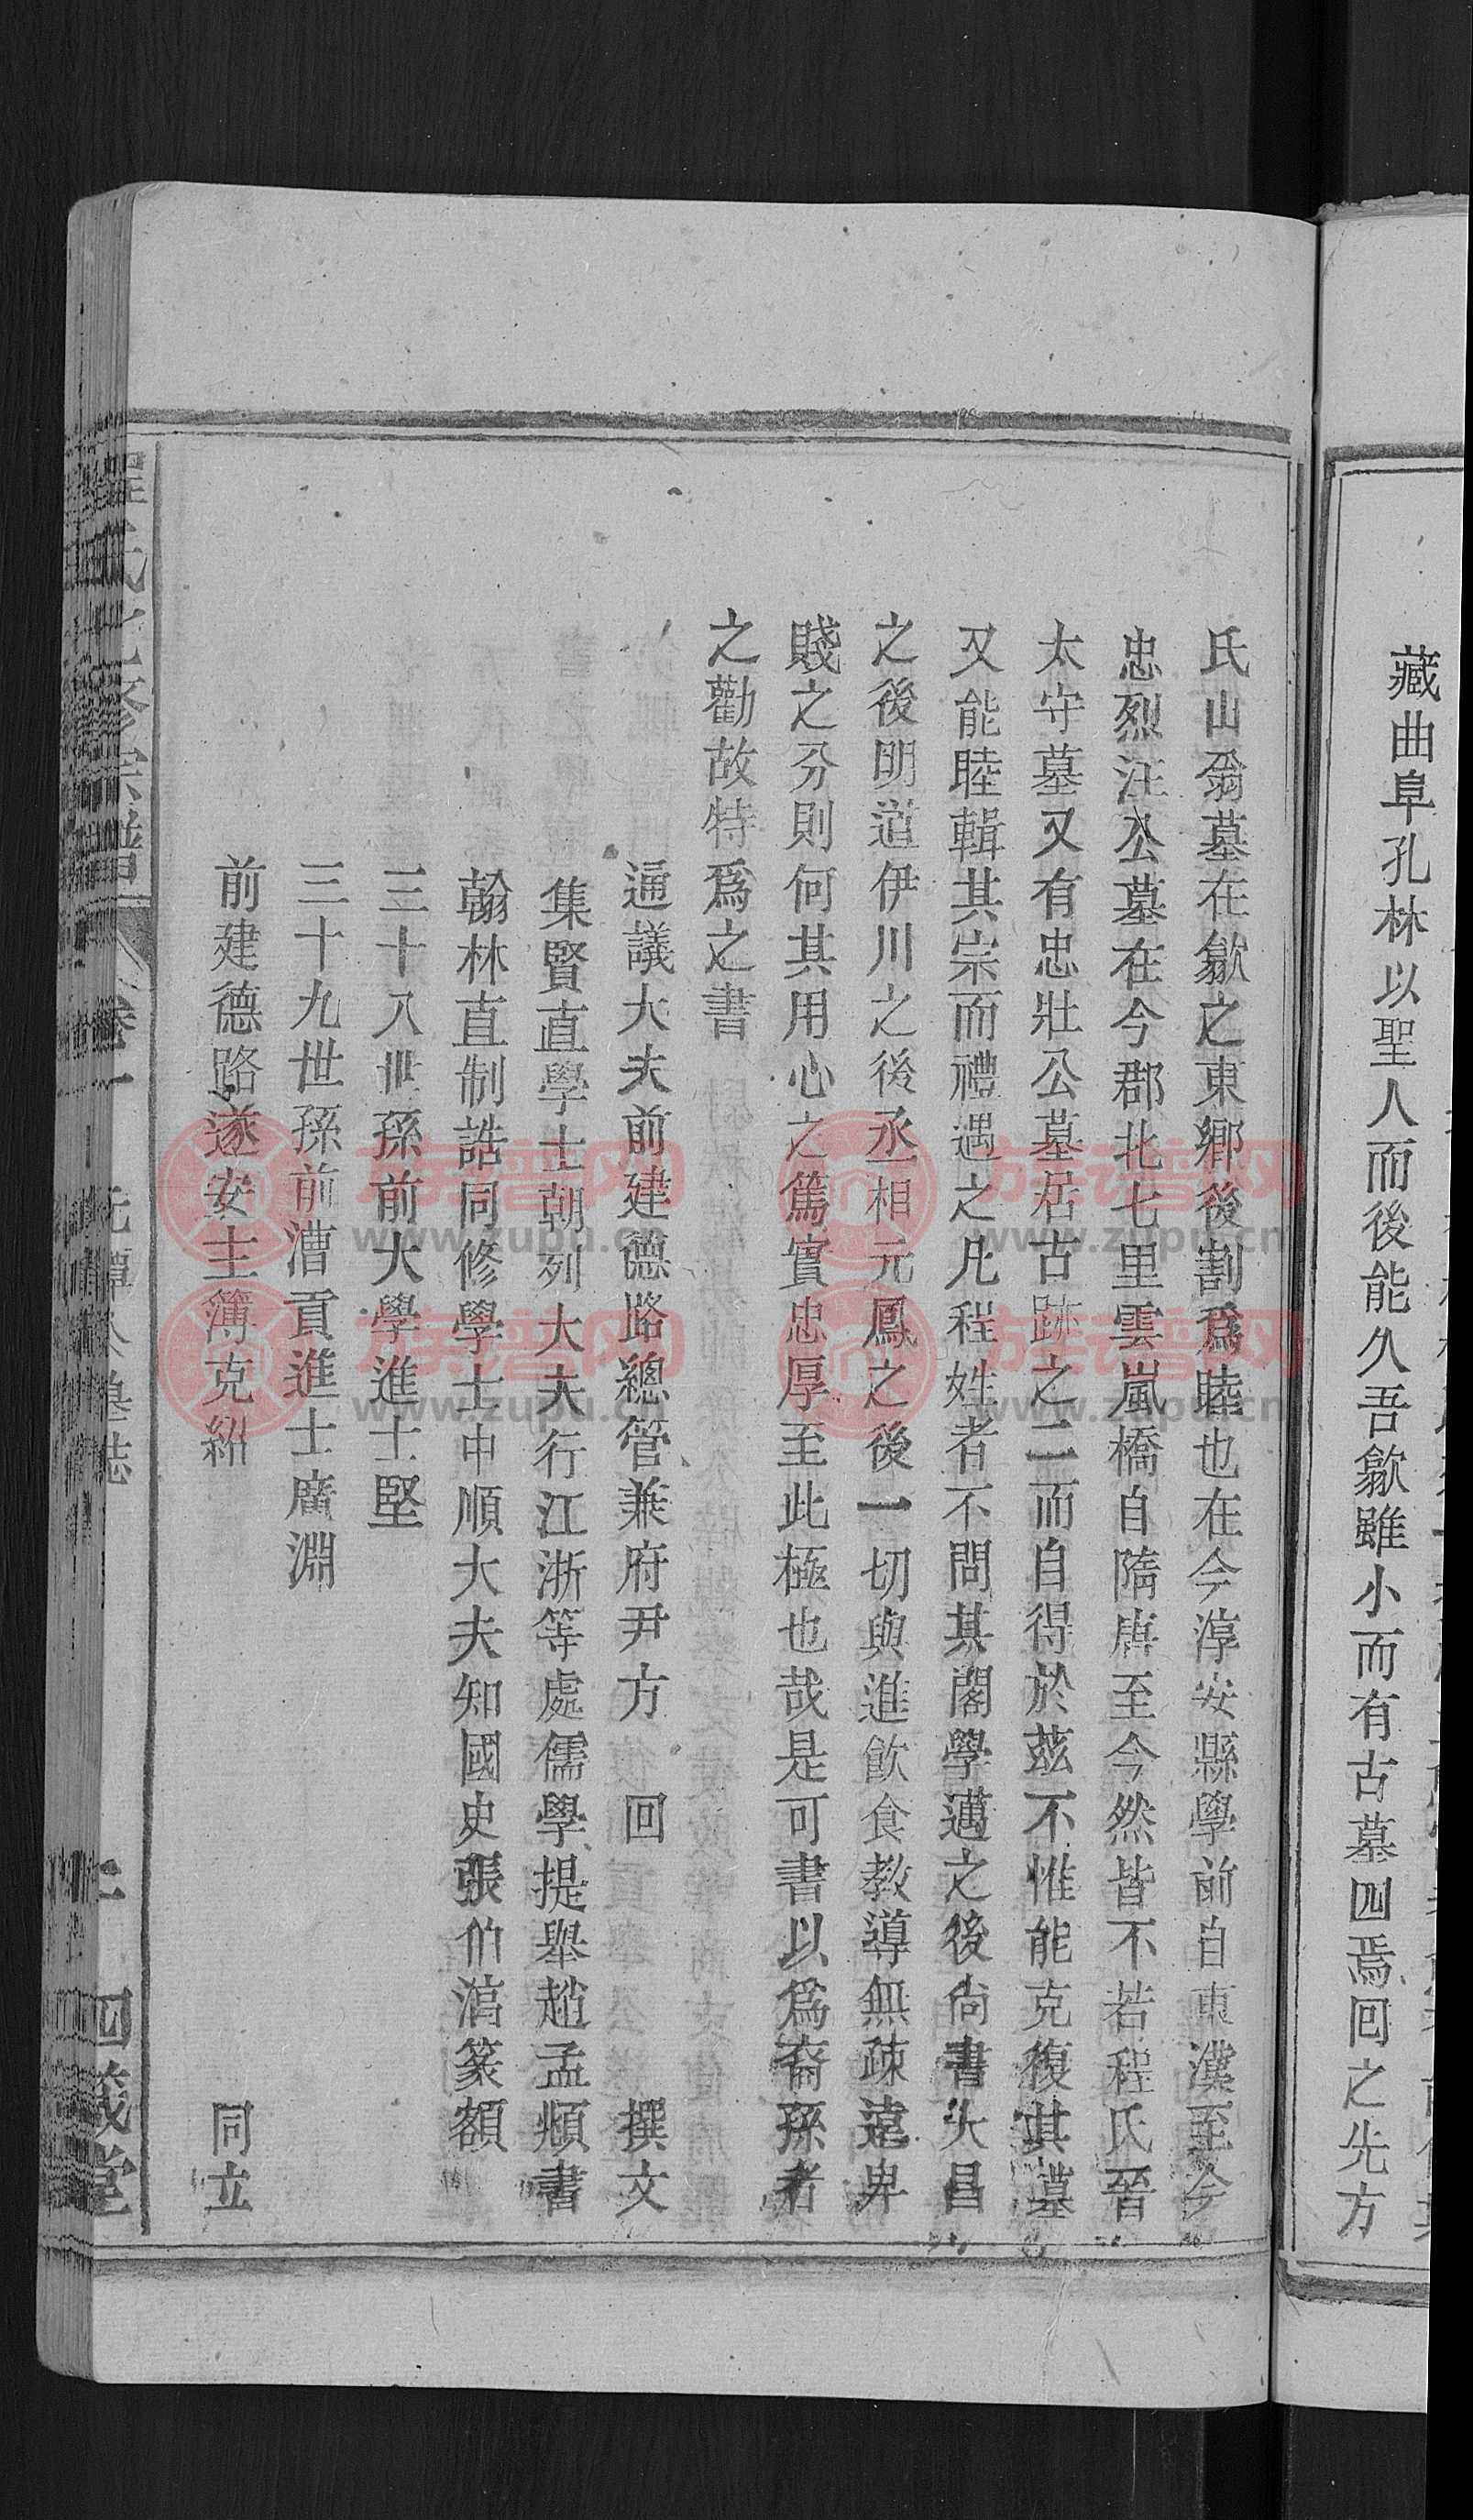 藏曲阜孔林以聖人而後能久吾歙雖小而有古墓四焉回之先方
氏山翁墓在歙之東鄉後割爲睦也在今淳安縣學前自東漢至今
忠烈汪公墓在今郡北七里雲嵐橋自隋唐至今然皆不若程氏晉
太守墓又有忠壯公墓居古跡之二而自得於茲不惟能克復其墓
又能睦輯其宗而禮遇之凡程姓者不問其閣學邁之後尙書大昌
之後明道伊川之後丞相元鳳之後一切與進飲食教導無疎遠卑
賤之分則何其用心之篤實忠厚至此極也哉是可書以爲裔孫者
之勸故特爲之書
通議大夫前建德路總管兼府尹方 回 撰文
集賢直學士朝列大夫行江浙等處儒學提舉趙孟頫書
翰林直制誥同修學士中順大夫知國史張伯淳篆額
三十八世孫前大學進士堅
三十九世孫前漕貢進士廣淵
前建德路遂安主簿克紹 同立
卷一
四箴堂
族譜网
www.zupu.cn
族譜网
www.zupu.cn
族譜网
www.zupu.cn
族譜网
www.zupu.cn